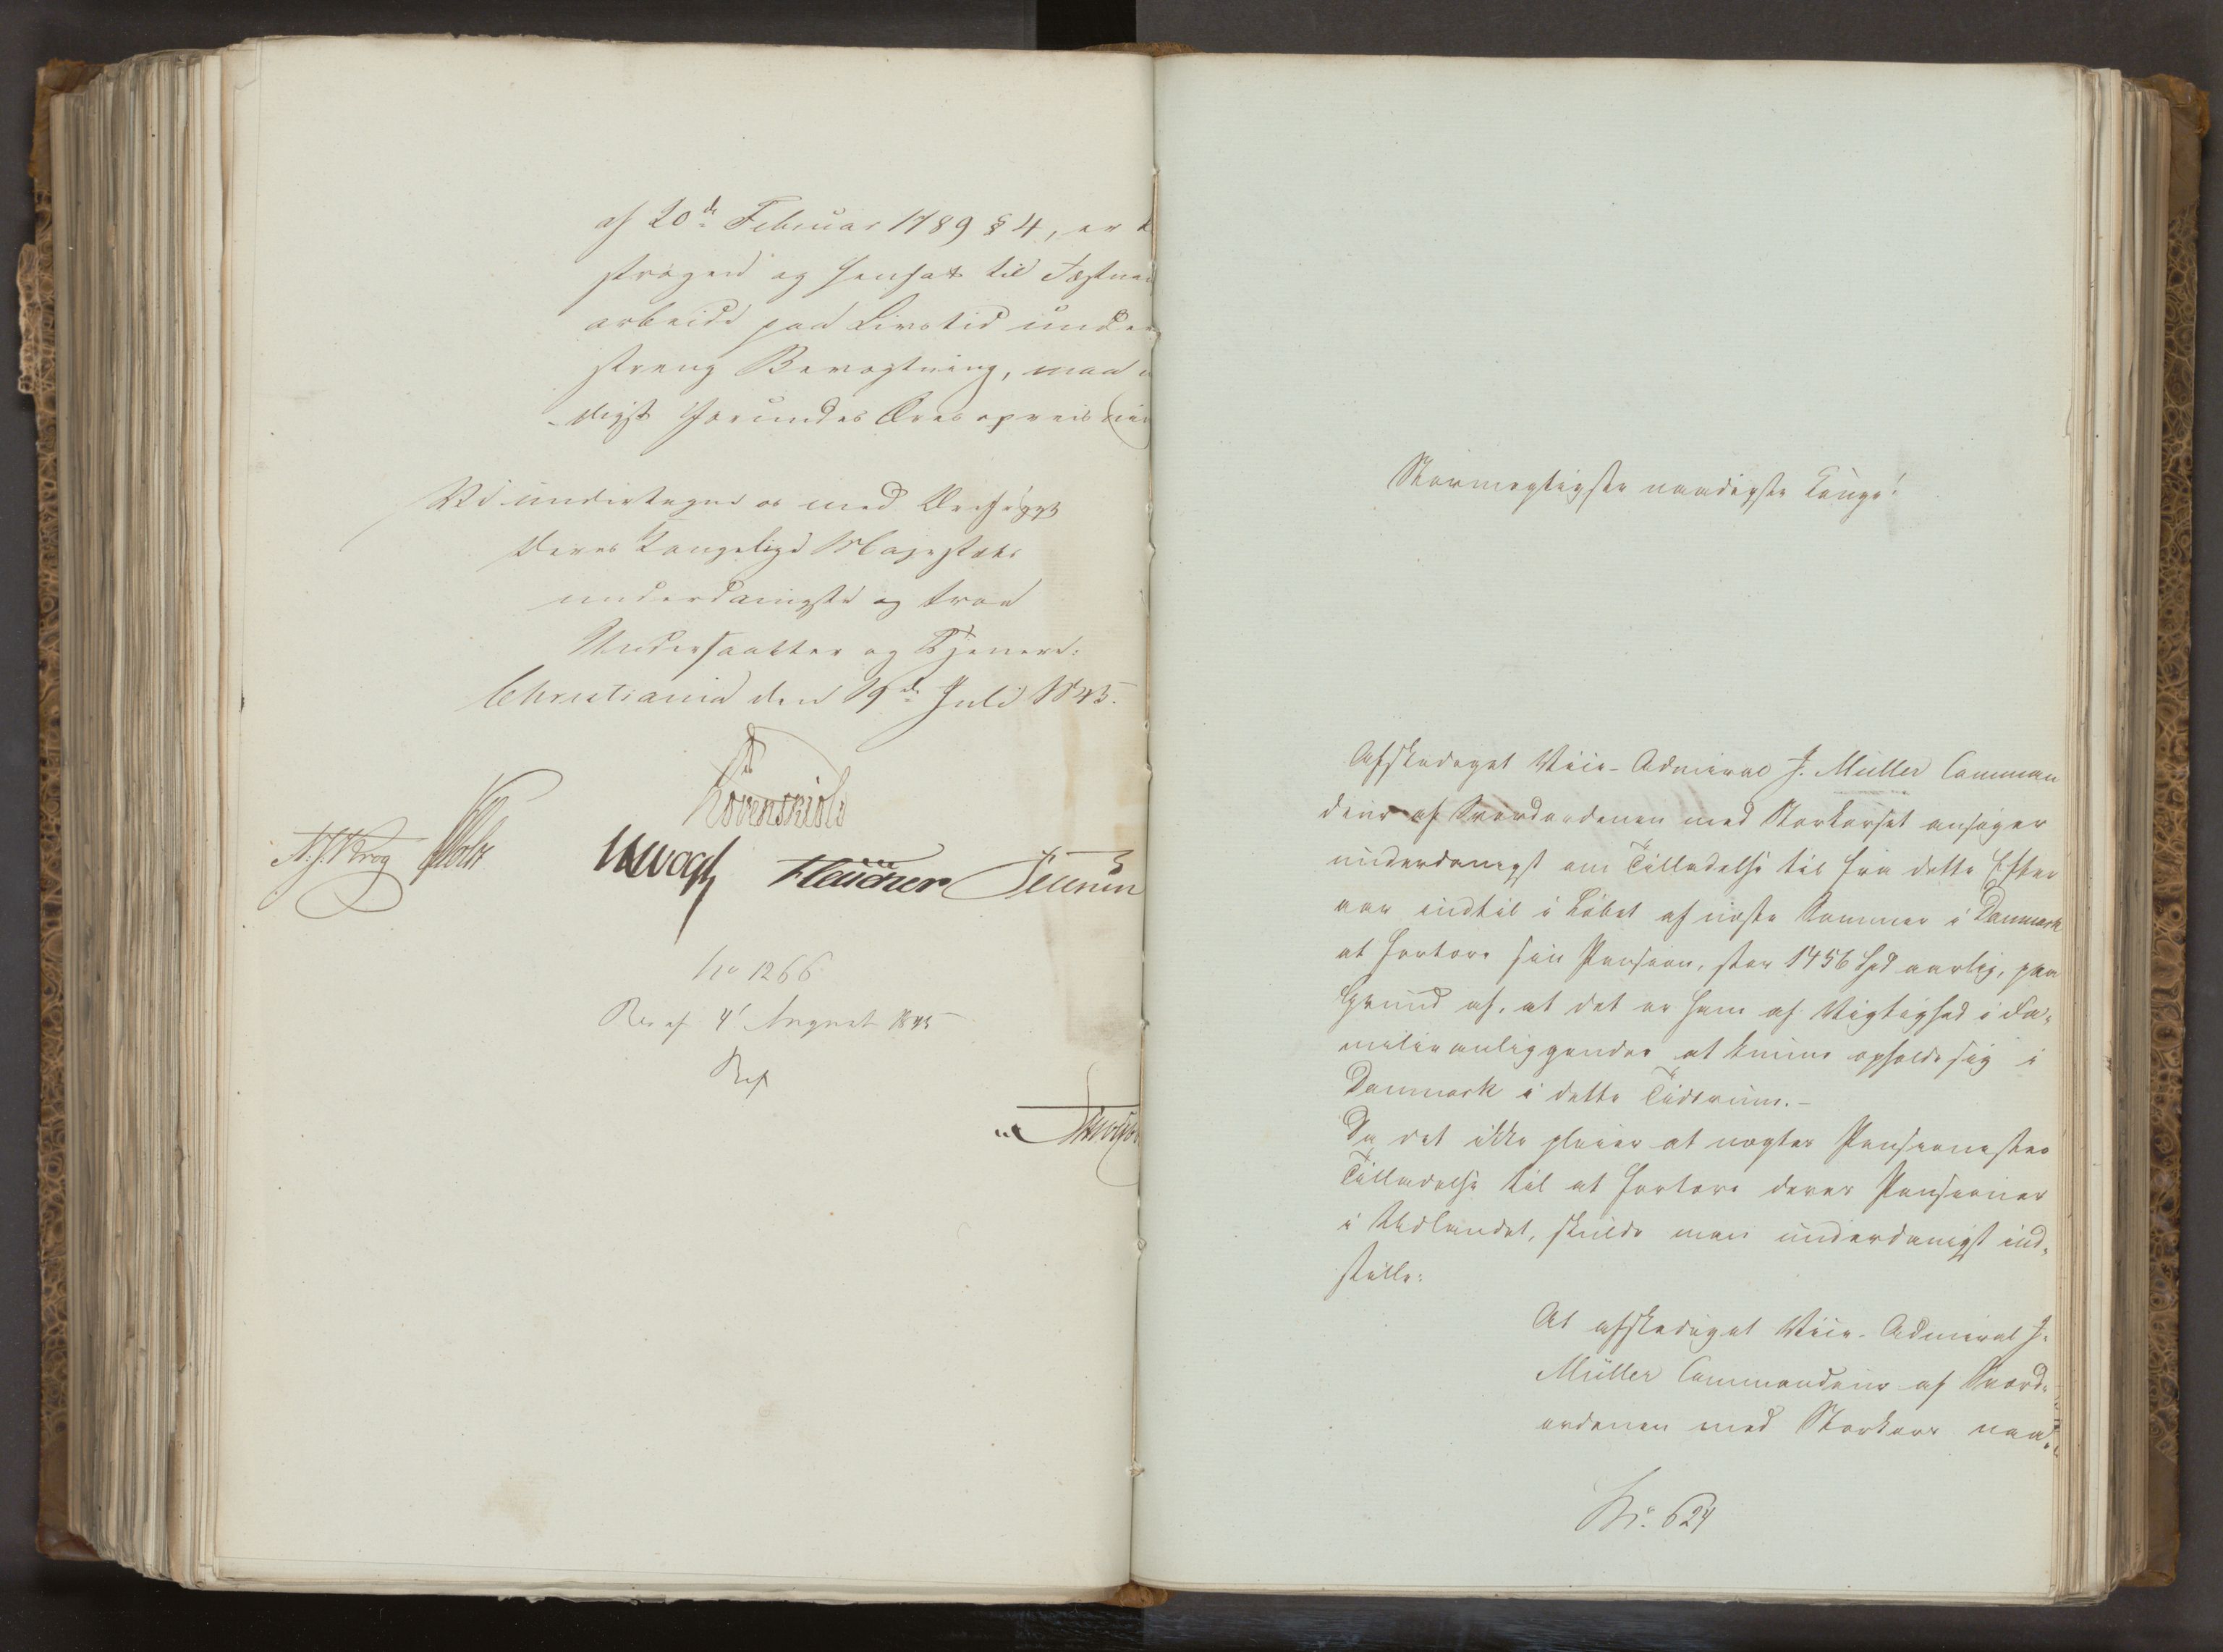 af 20de Februar 1789 § 4, er
strøgen og hensat til Fæstnin
arbeide paa Livstid under
streng Bevogtning, maa
digst forundes Æresopreisnin
Vi undertegne os med Ærefrygt
Deres Kongelige Majestæts
underdanigste og troe
Undersaatter og Tjenere:
Christiania den 19de Juli 1845.
Løvenskiold
N. J. Krog Holst Vogt Fleischer Petersen
No 1266
Res af 4' August 1845
Ref
Stormægtigste naadigste Konge!
Afskediget Vice-Admiral J. Müller Comman
deur af Sværdordenen med Storkorset ansøger
underdanigst om Tilladelse til fra dette Efter
aar indtil i Løbet af næste Sommer i Danmark
at fortære sin Pension, stor 1456 Spd aarlig, paa
Grund af, at det er ham af Vigtighed i Fa-
milieanliggender at kunne opholde sig i
Danmark i dette Tidsrum.-
Da det ikke pleier at negtes Pensionister
Tilladelse til at fortære deres Pensioner
i Udlandet, skulde man underdanigst ind-
stille:
At afskediget Vice-Admiral J.
Müller Commandeur af Sværd-
ordenen med Storkors naa-
No. 624